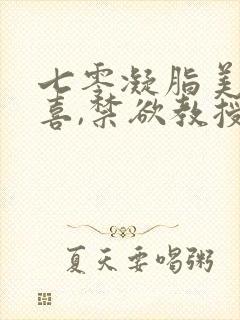 七零凝脂美
喜,禁欲教授
夏天要喝粥